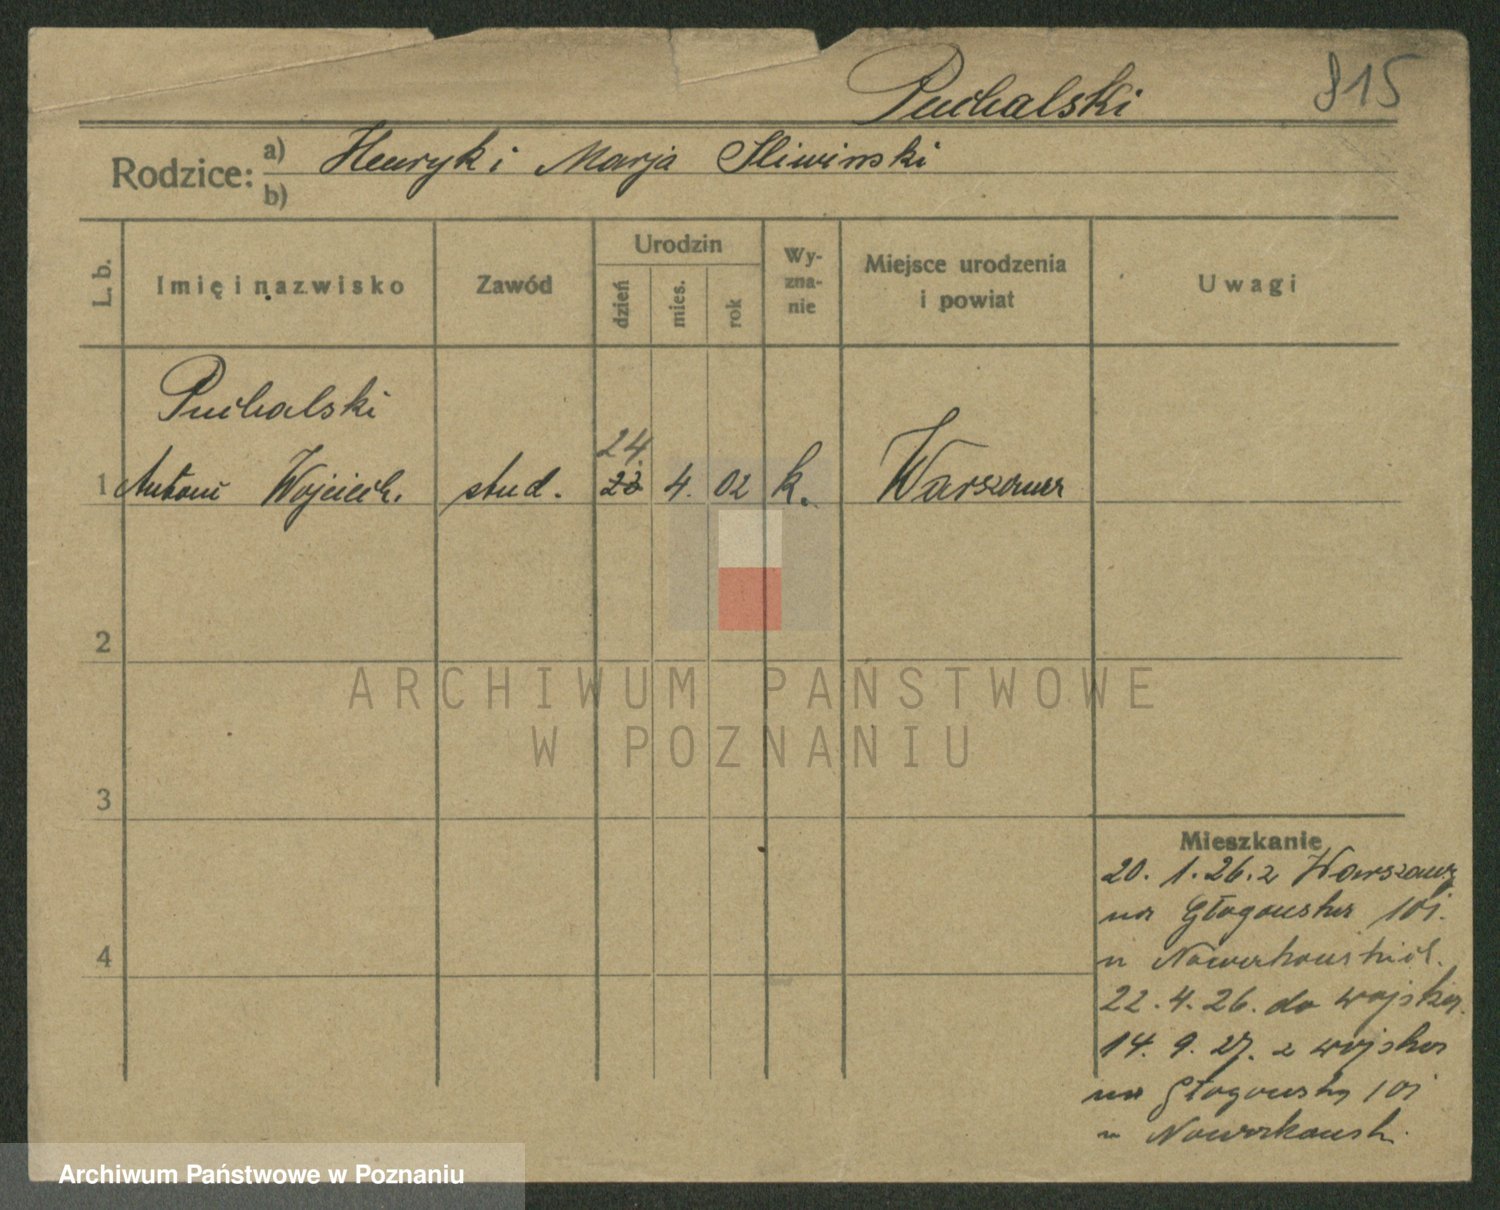 Puchalski 815
Rodzice: a) Henryk i Marja Sliwinski
b)
L. b.
Imię i nazwisko
Zawód
Urodzin
dzień
mies.
rok
Wy-
zna-
nie
Miejsce urodzenia
i powiat
Uwagi
Puchalski
24.
1 Antoni Wojciech. stud. 22 4. 02 k. Warszawa
2
3
4
Mieszkanie
20. 1. 26. z Warszawy
na Głogowska 101.
u
22. 4. 26. do wojska.
14. 9. 27. z wojska
na Głogowską 101
u
ARCHIWUM PAŃSTWOWE
W POZNANIU
Archiwum Państwowe w Poznaniu